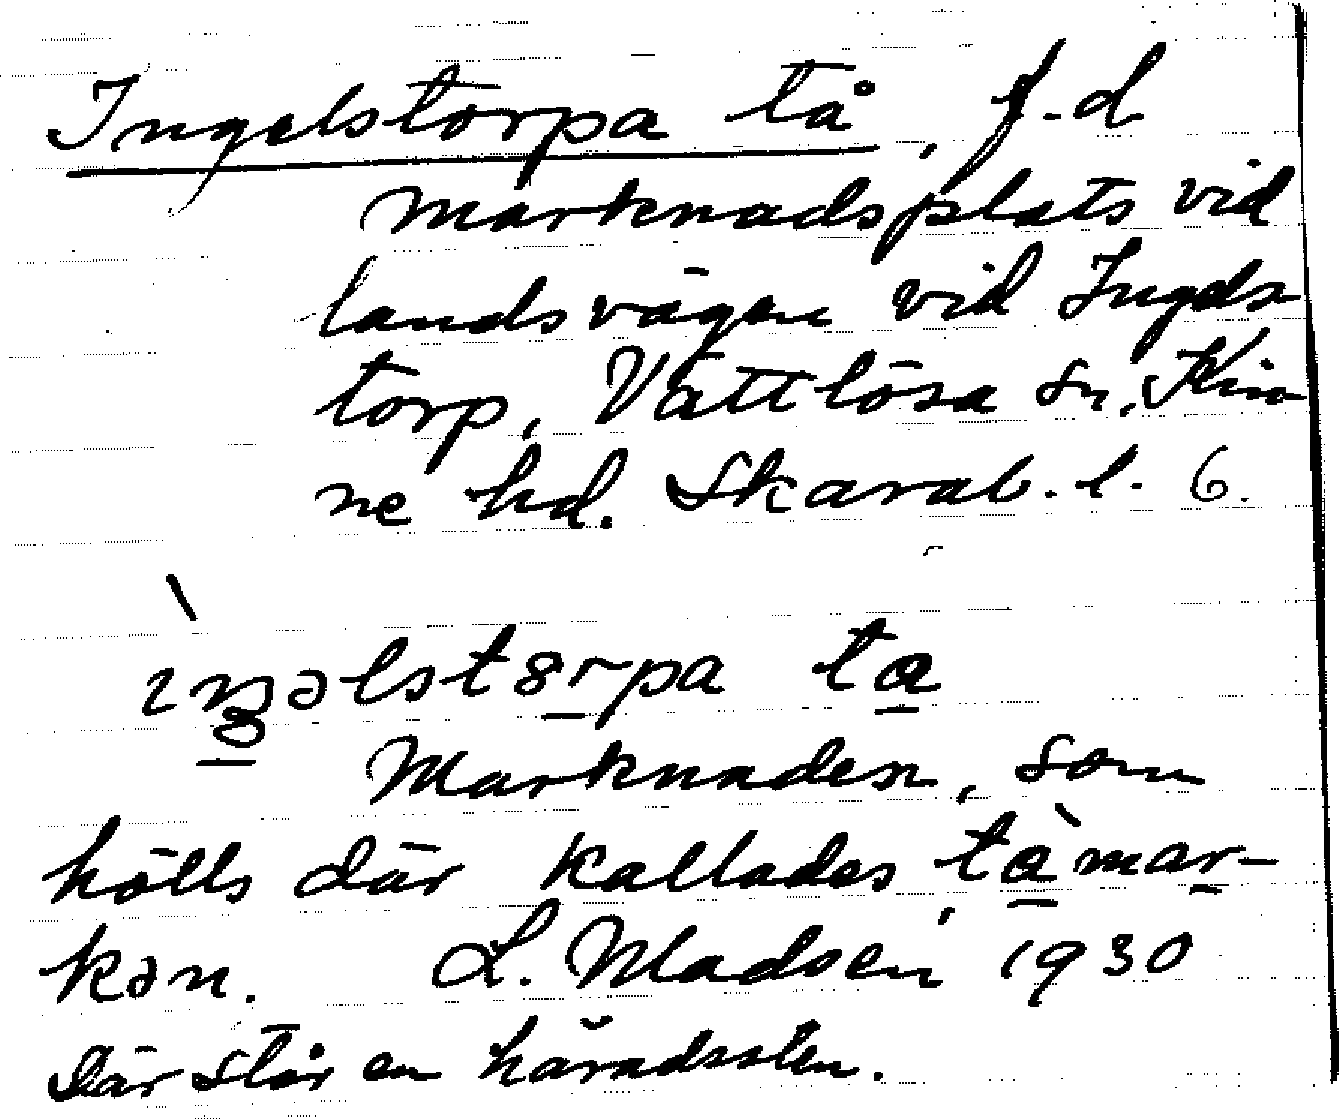 Ingelstorpa tå, f.d
marknadsplats vid
landsvägen vid Ingels-
torp, Vättlösa sn, Kin-
ne hd. Skarab. l. 6.
ıŋəlstɞrpa tɑ̲
Marknaden, som
hölls där kallades, tɑ̲̀mar-
kən. L. Madsen 1930
Där står en häradssten.